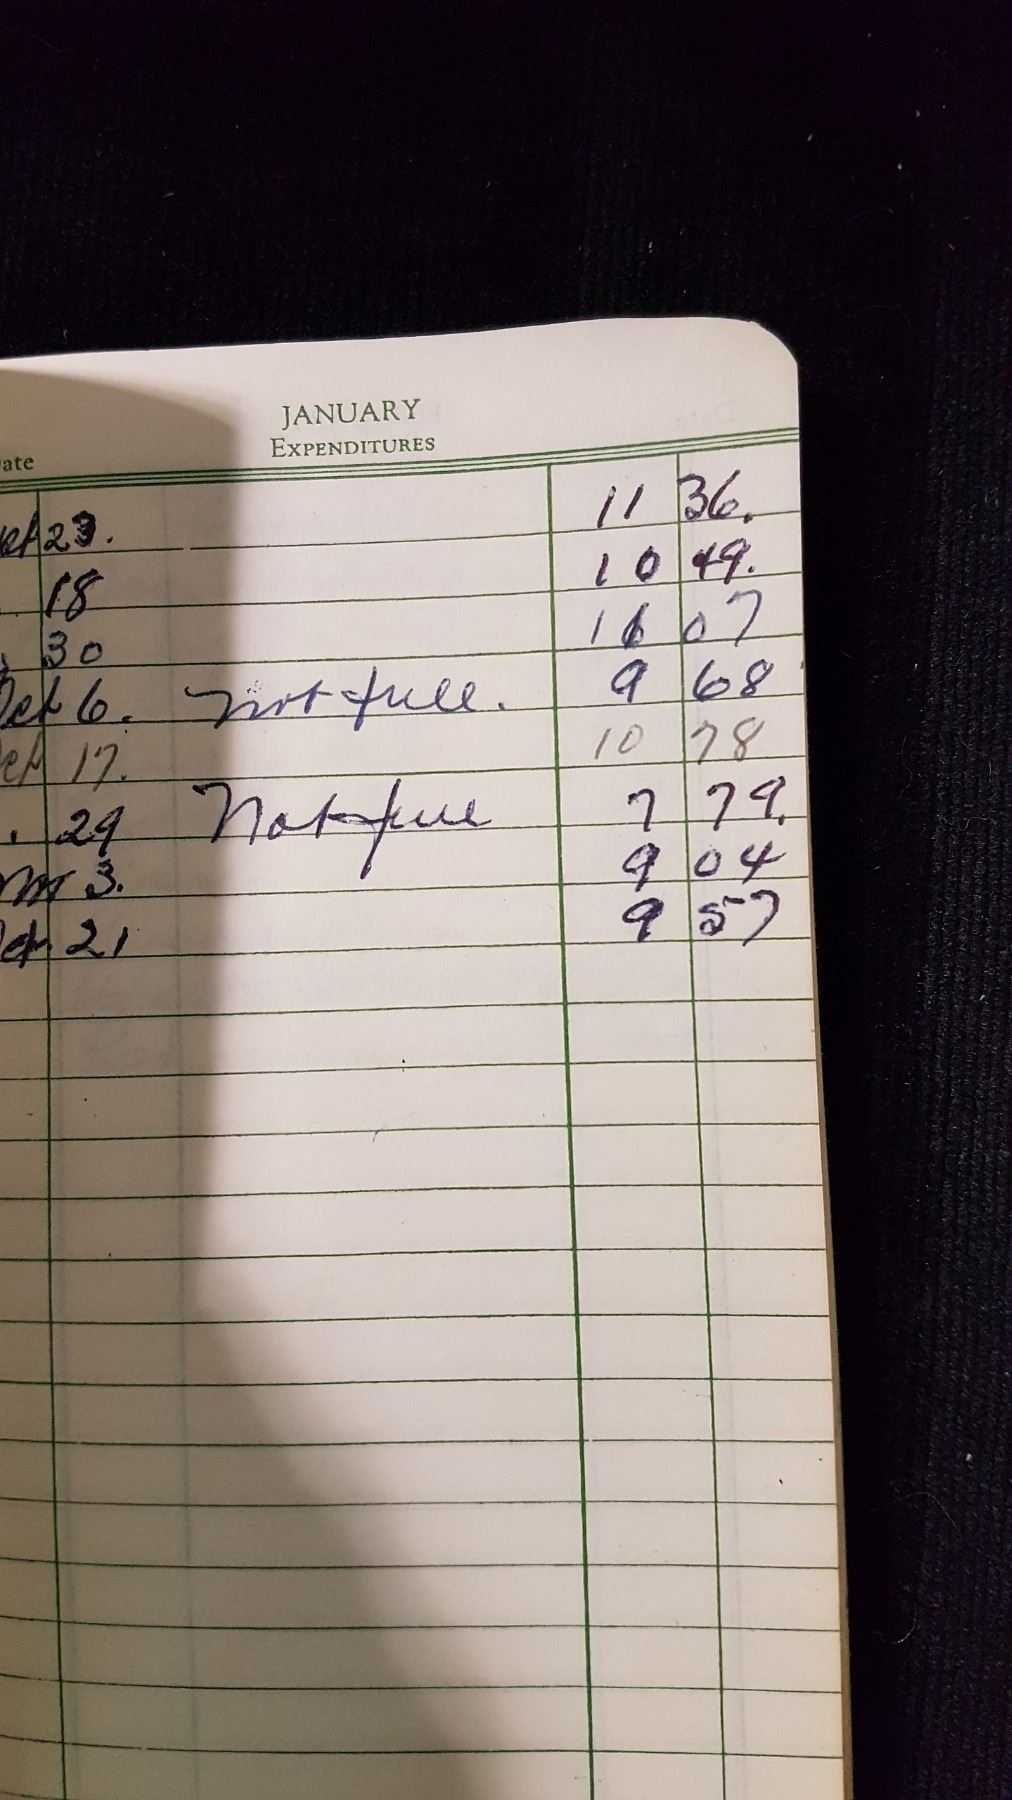 JANUARY
EXPENDITURES
ate
23. 11 36.
18 10 49.
30 07
Oct 6. not full. 9 68
17. 10 78
. 29 Not full 7 79.
3. 9 04
21 9 57